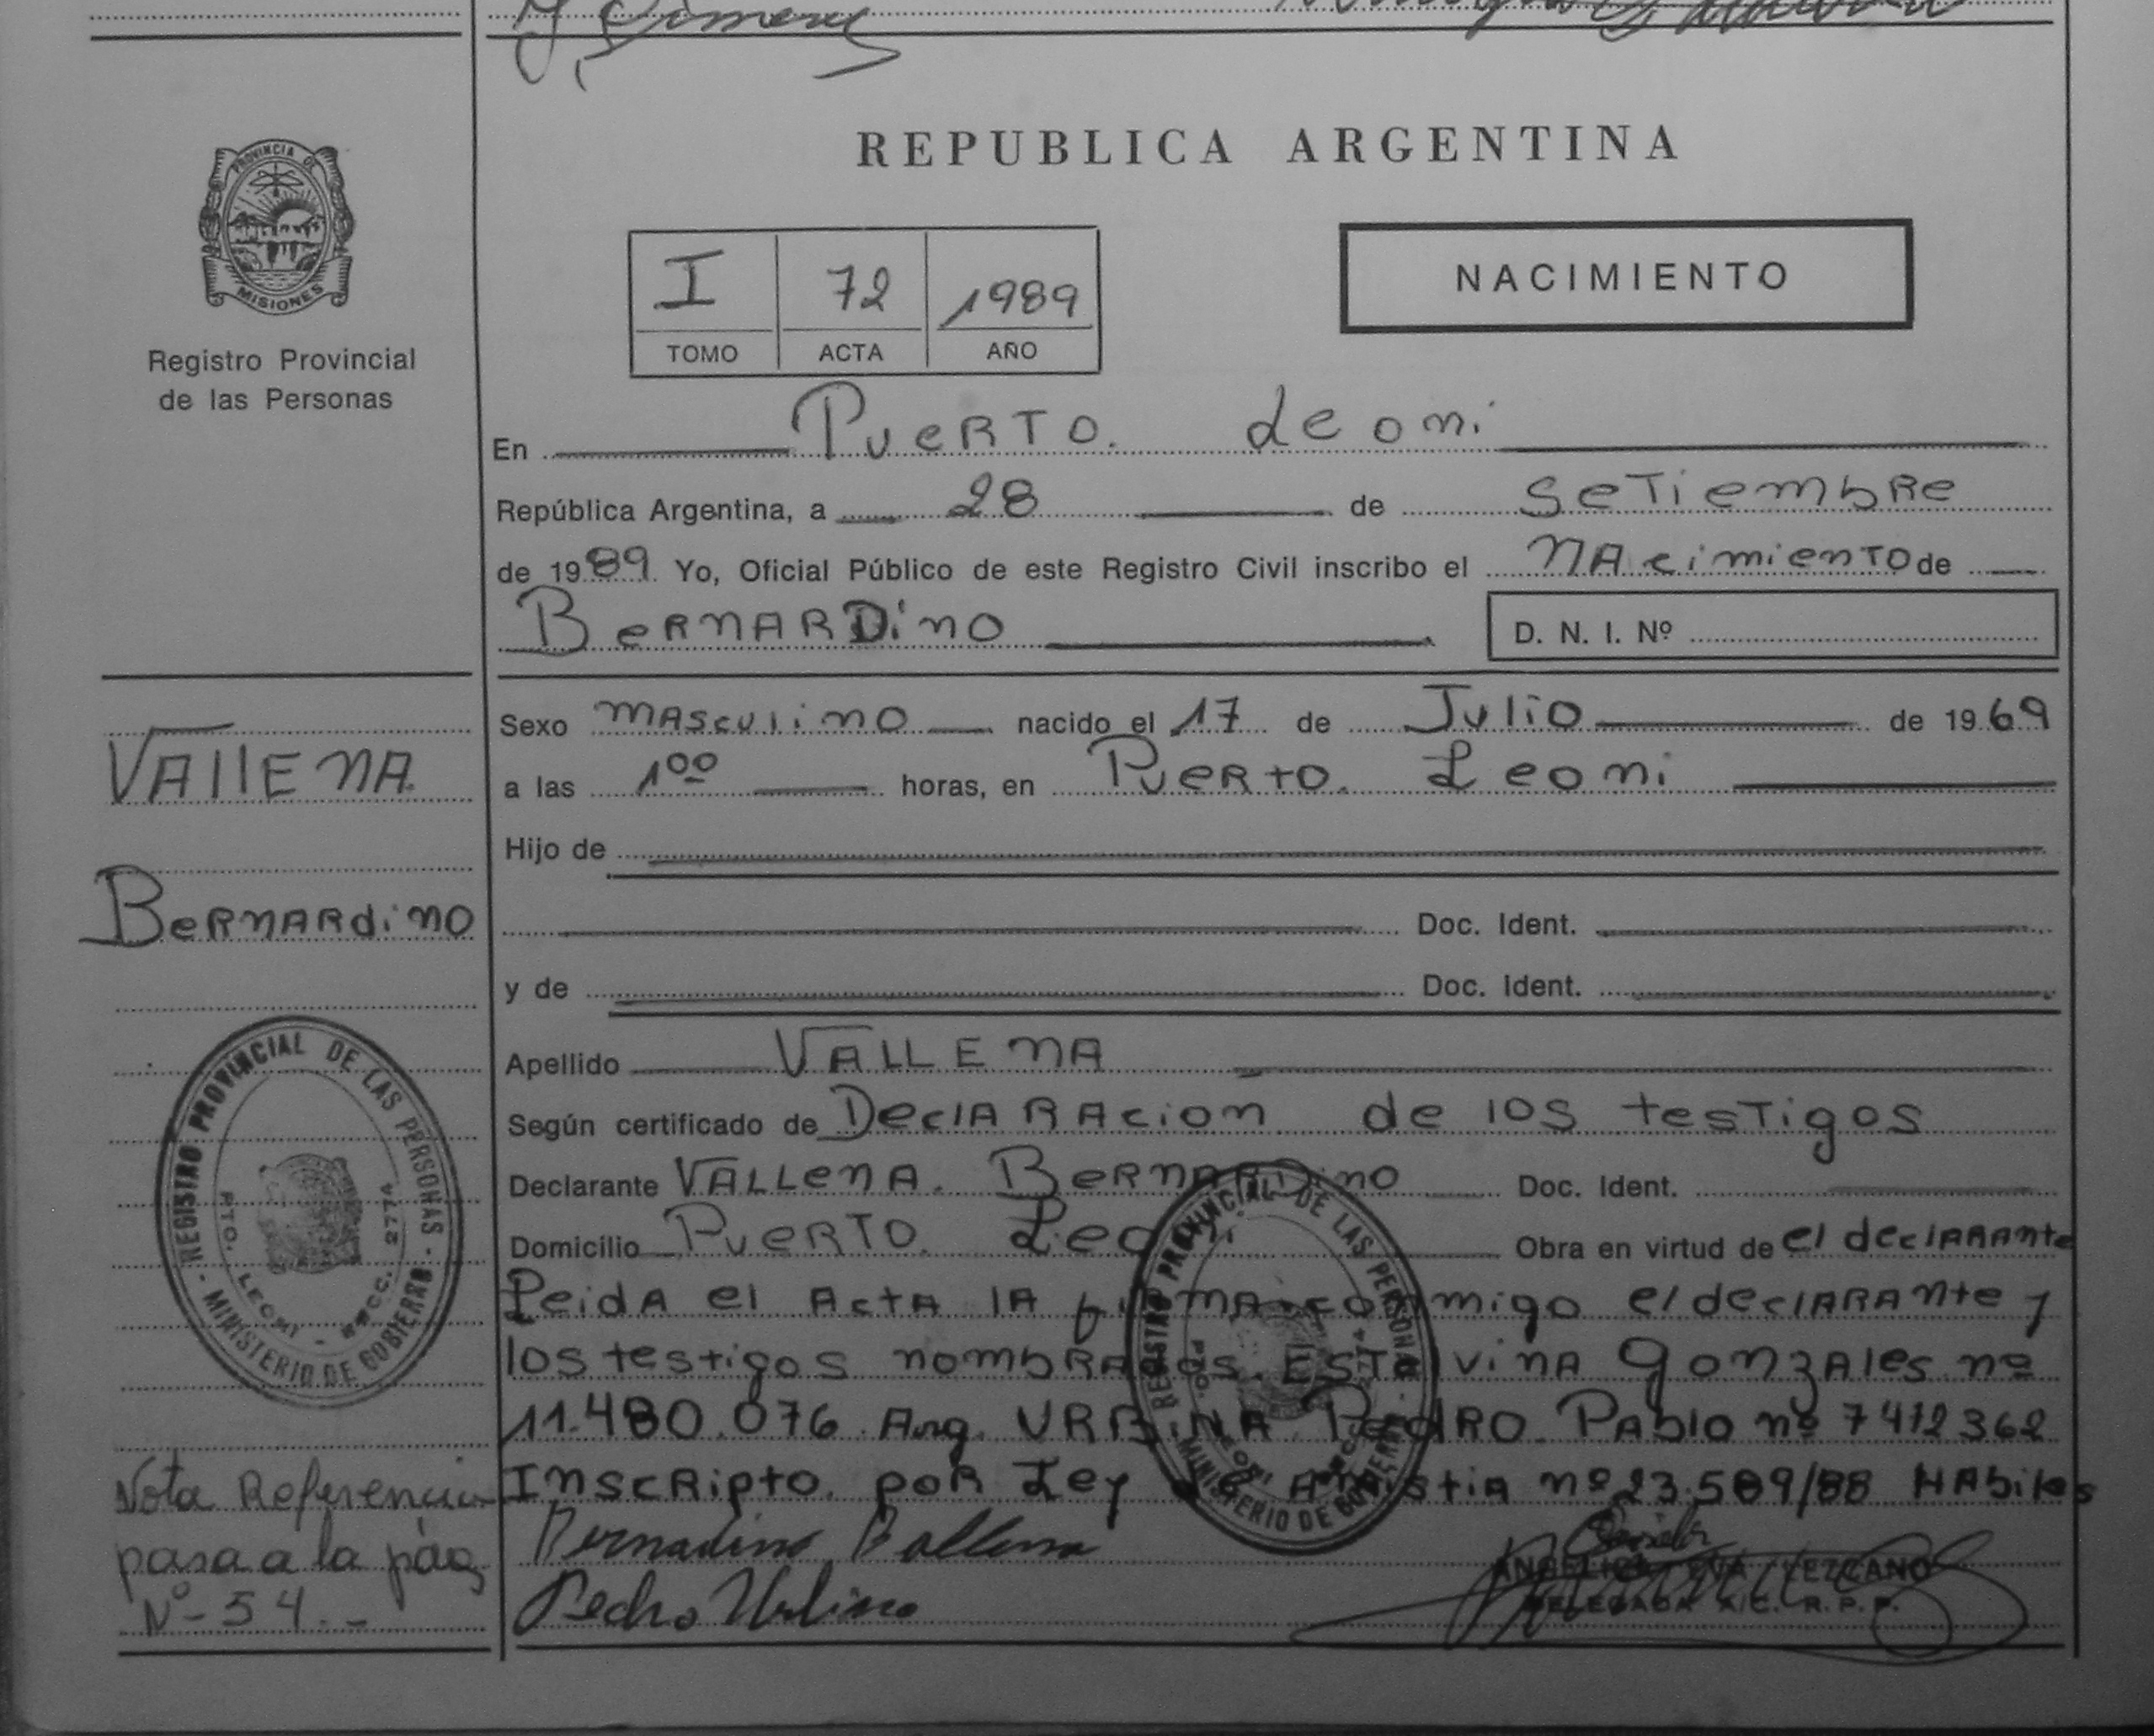 REPUBLICA ARGENTINA
PROVINCIA DE
MISIONES
Registro Provincial
de las Personas
I 72 1989
TOMO ACTA AÑO
NACIMIENTO
En Puerto Leoni
República Argentina, a 28 de Setiembre
de 1989 Yo, Oficial Público de este Registro Civil inscribo el NAcimiento de
BERNARDINO
D. N. I. Nº
Sexo masculino nacido el 17 de Julio de 1969
a las 1ºº horas, en Puerto Leoni
Hijo de
Doc. Ident.
y de Doc. Ident.
Apellido VALLENA
Según certificado de Declaracion de los testigos
Declarante VALLENA. Bernardino Doc. Ident.
Domicilio Puerto Leoni Obra en virtud de el declarante
Leida el Acta la firma conmigo el declarante y
los testigos nombrados. Estelvina Gonzales nº
11.480.076 Arg. URBINA Pedro Pablo nº 7412362
Inscripto por Ley de Amistia nº 23.589/88 Habiles
Bernadino Ballena
Pedro Urbina
ANGELICA EVA LEZCANO
DELEGADA A/C. R.P.P.
VALLENA
Bernardino
REGISTRO PROVINCIAL DE LAS PERSONAS
MINISTERIO DE GOBIERNO
PTO. LEONI - SECC. 2774
REGISTRO PROVINCIAL DE LAS PERSONAS
MINISTERIO DE GOBIERNO
Nota Referencia
pasa a la pág
Nº - 54.-